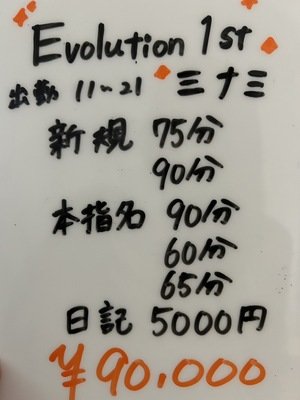 Evolution 1st
出勤 11～21 三十三
新規 75分
90分
本指名 90分
60分
65分
日記 5000円
¥90,000